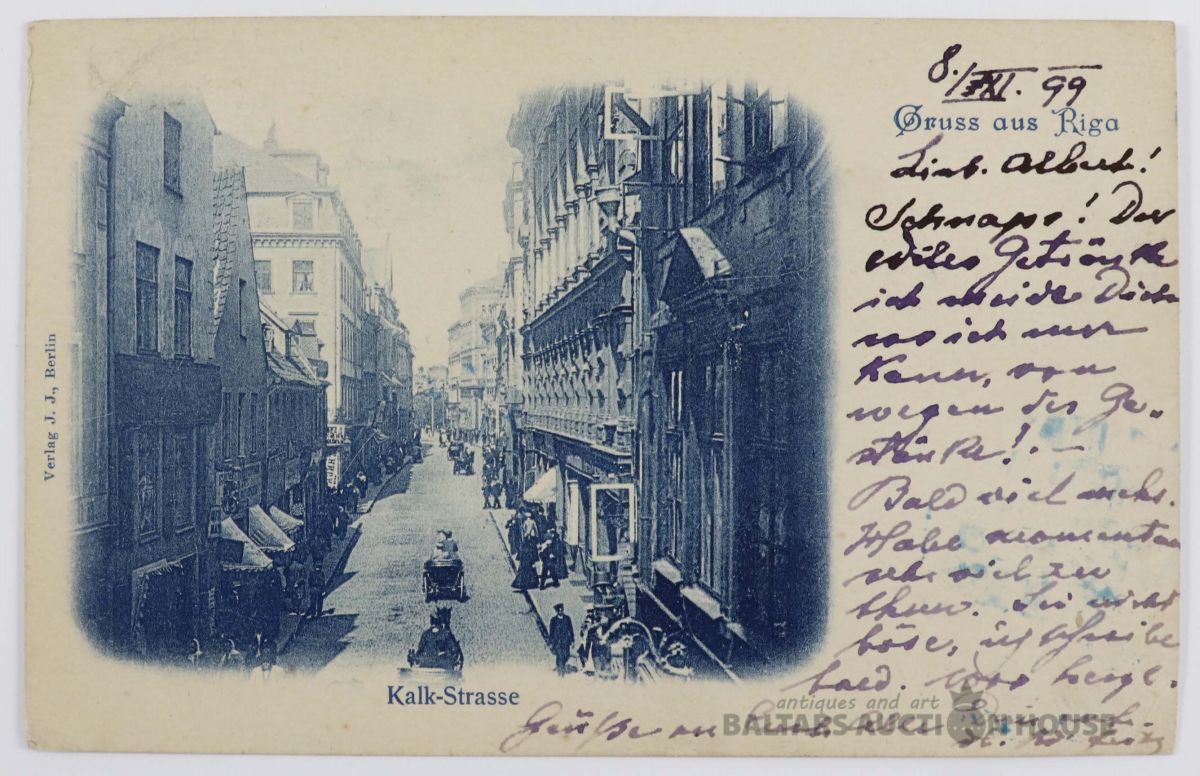 8./XII. 99
Gruss aus Riga
Lieb. Albert!
Schnaps! Der
Getränke
ich meide Dich
wo ich nur
kann, von
wegen des Ge-
stänke! -
Bald viel mehr.
Habe momentan
sehr viel zu
thun. Sei nicht
böse, ich schreibe
bald.
Grüße an
Verlag J. J., Berlin
Kalk-Strasse
antiques and art
BALTARS AUCTION HOUSE